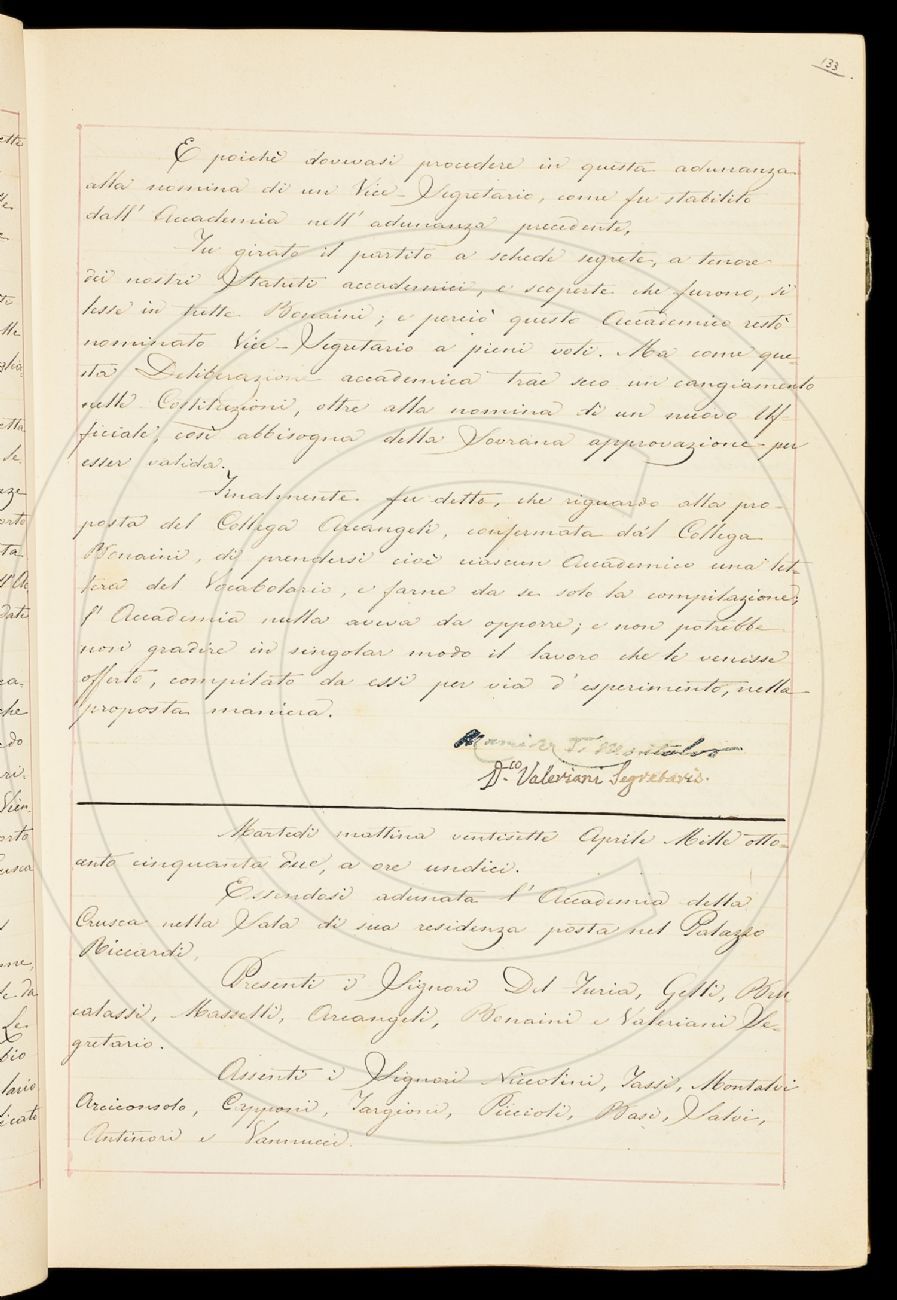 133
E poichè dovevasi procedere in questa adunanza
alla nomina di un Vice-Segretario, come fu stabilito
dall' Accademia nell' adunanza precedente,
Fu girato il partito a schede segrete, a tenore
dei nostri Statuti accademici, e scoperte che furono, si
lesse in tutte Bonaini; e perciò questo Accademico restò
nominato Vice-Segretario a pieni voti. Ma come que
sta Deliberazione accademica trae seco un cangiamento
nelle Costituzioni, oltre alla nomina di un nuovo Uf-
ficiale, così abbisogna della Sovrana approvazione per
esser valida.
Finalmente fu detto, che riguardo alla pro-
posta del Collega Arcangeli, confermata dal Collega
Bonaini, di prendersi cioè ciascun Accademico una let-
tera del Vocabolario, e farne da se solo la compilazione;
l' Accademia nulla aveva da opporre; e non potrebbe
non gradire in singolar modo il lavoro che le venisse
offerto, compilato da essi per via d' esperimento, nella
proposta maniera.
D.co Valeriani Segretario.
Martedì mattina ventisette Aprile Mille otto-
cento cinquanta due, a ore undici.
Essendosi adunata l' Accademia della
Crusca nella Sala di sua residenza posta nel Palazzo
Riccardi,
Presenti i Signori Del Furia, Gelli, Bru
calassi, Masselli, Arcangeli, Bonaini e Valeriani Se-
gretario.
Assenti i Signori Niccolini, Tassi, Montalvi
Arciconsolo, Capponi, Targioni, Piccioli, Basi, Salvi,
Antinori e Vannucci.